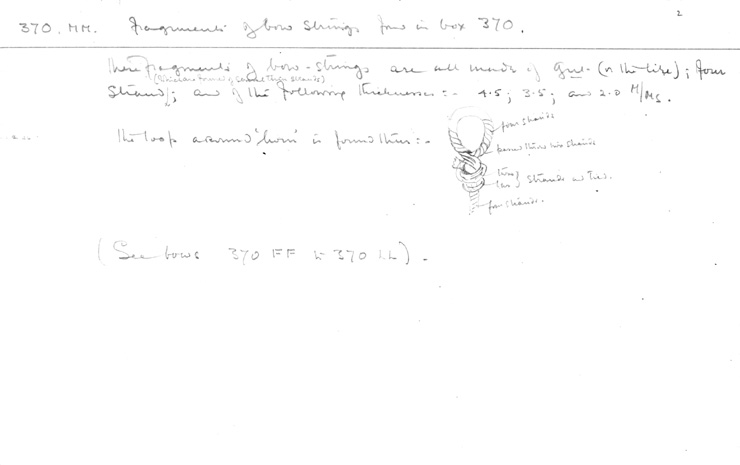 2
370. MM. Fragments of bow strings found in box 370.
These fragments of bow-strings are all made of Gut (or the like); four
(Which are formed of several thin strands)
Strand; and of the following thicknesses:- 4.5; 3.5; and 2.0 M/Ms.
The loop around 'horn' is found thus:-
four strands
passed through two strands
two of
strands as tied.
four strands.
(See bows 370 FF to 370 LL).